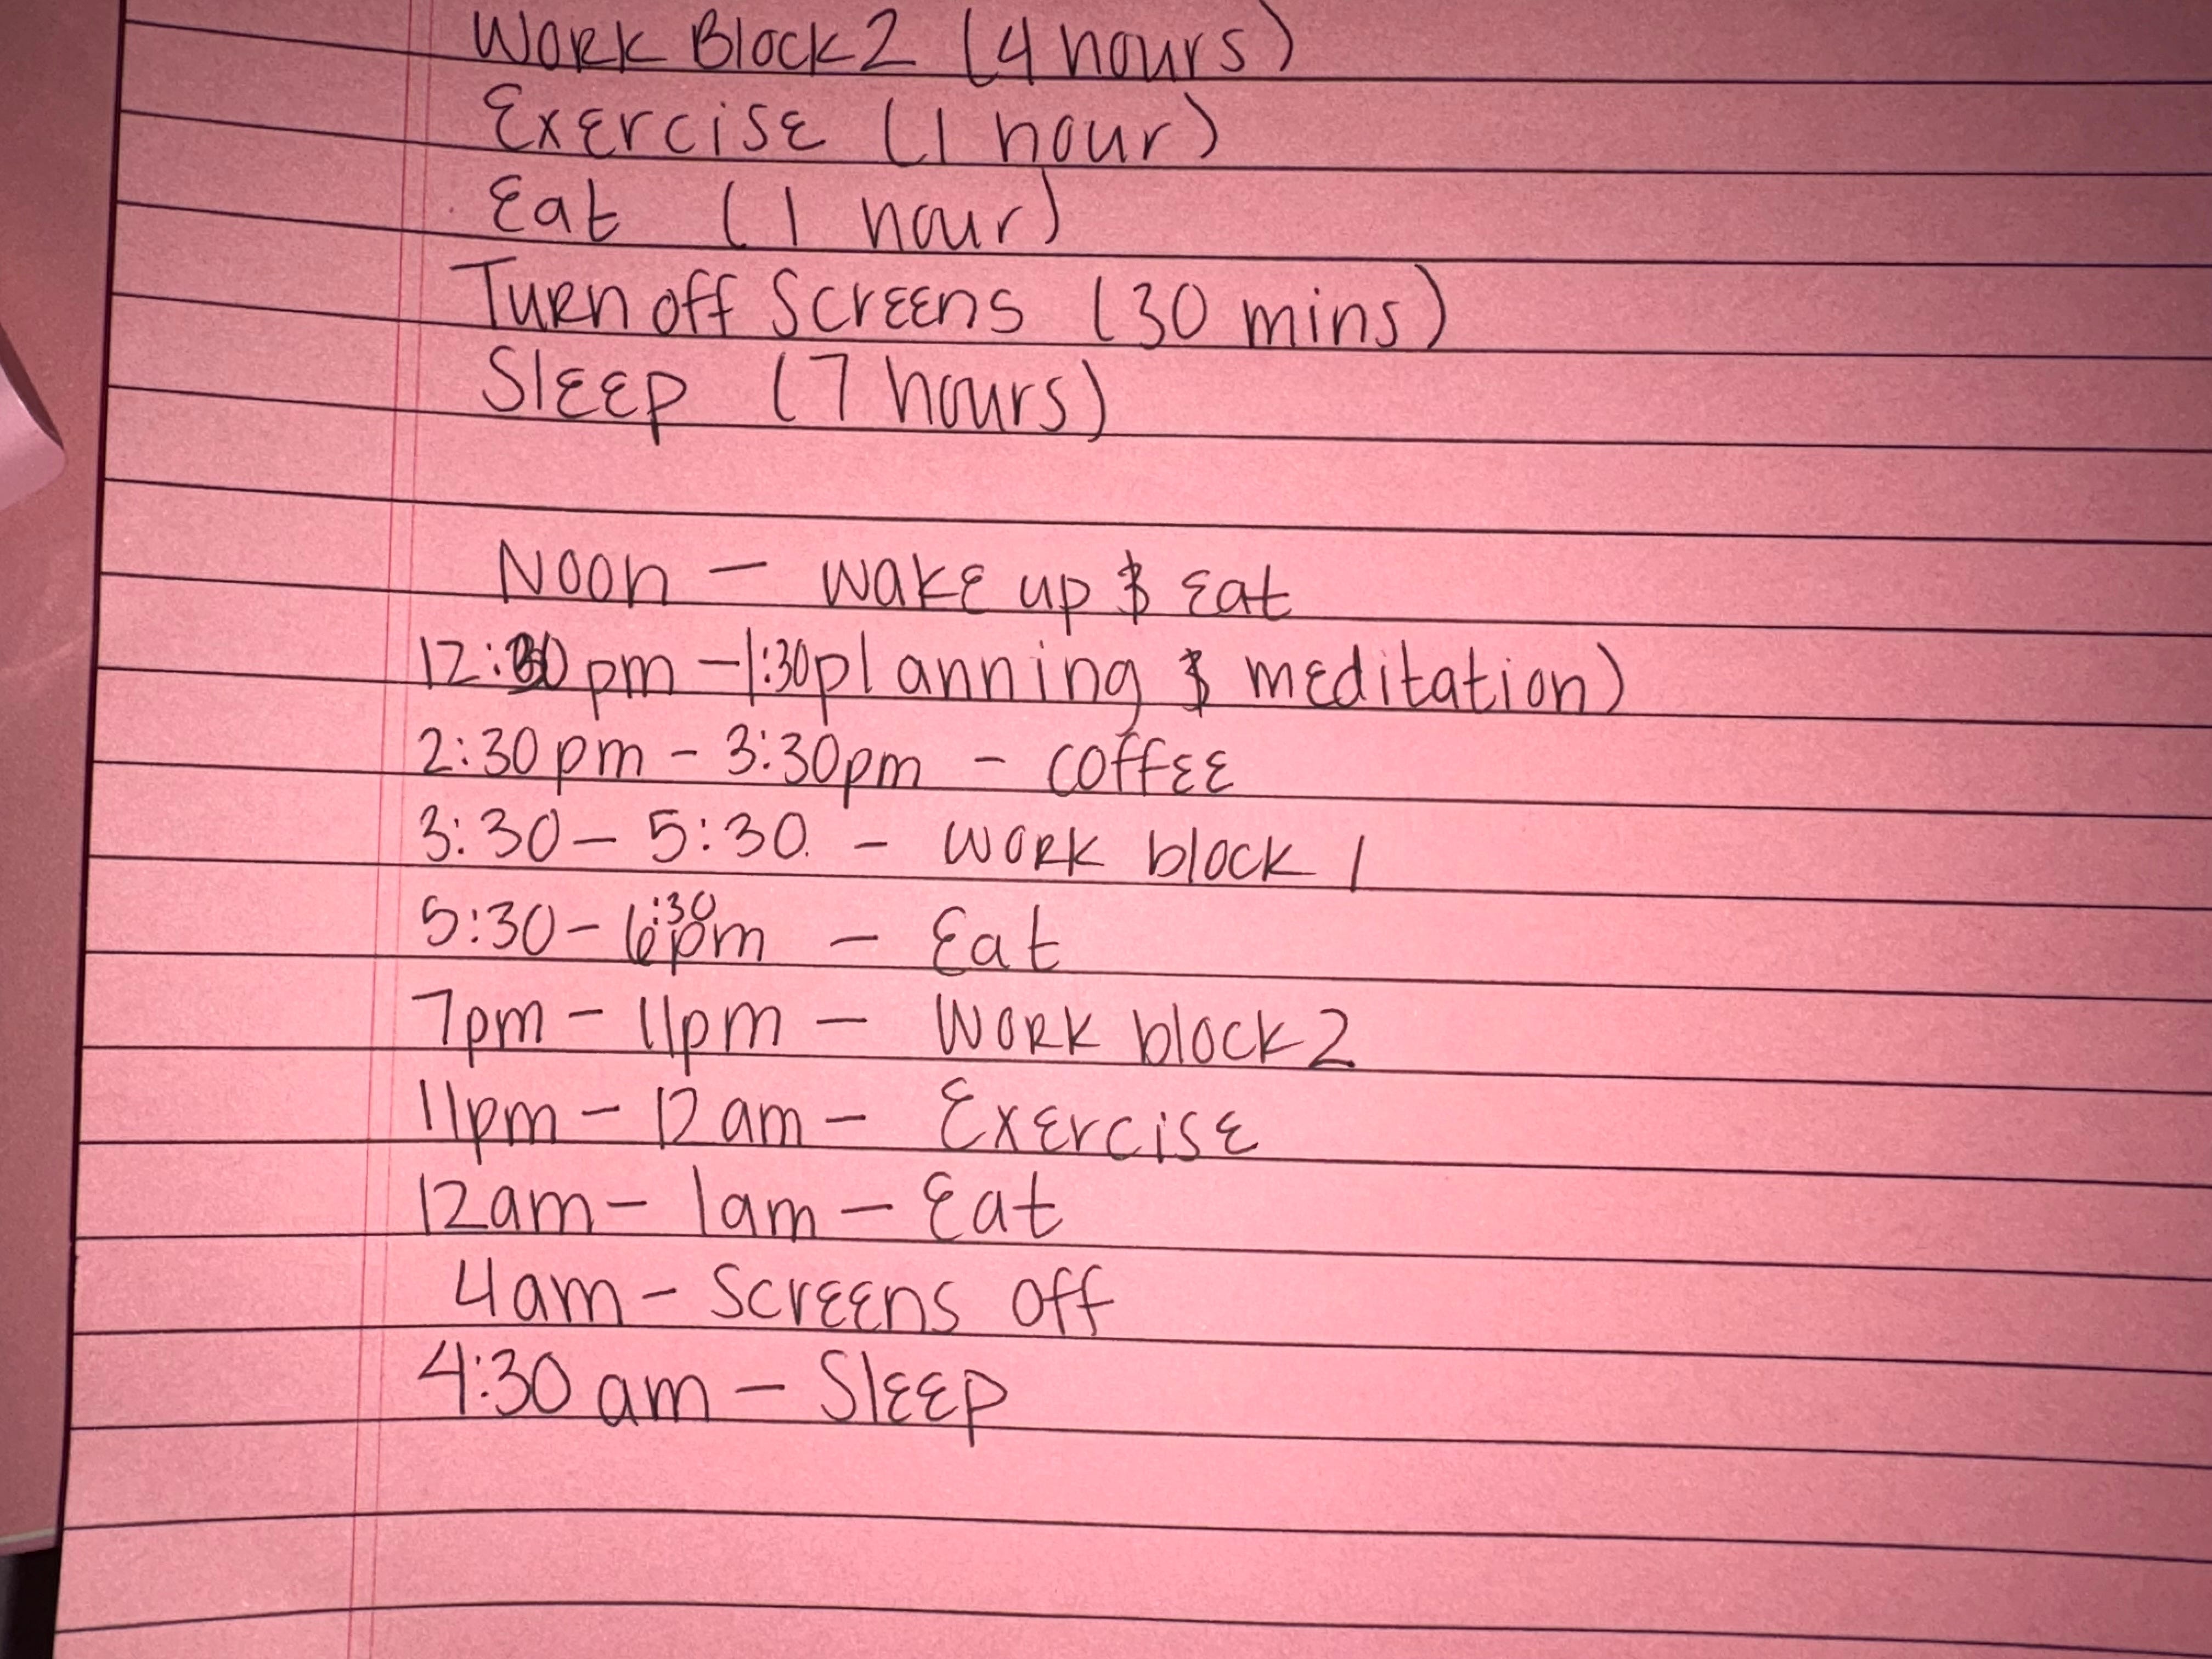 Work Block 2 (4 hours)
Exercise (1 hour)
Eat (1 hour)
Turn off Screens (30 mins)
Sleep (7 hours)
Noon - wake up & Eat
12:30 pm - 1:30 planning & meditation)
2:30 pm - 3:30pm - coffee
3:30 - 5:30. - work block 1
5:30 - 6:30 pm - Eat
7pm - 11pm - Work block 2
11pm - 12 am - Exercise
12am - 1am - Eat
4am - Screens off
4:30 am - Sleep